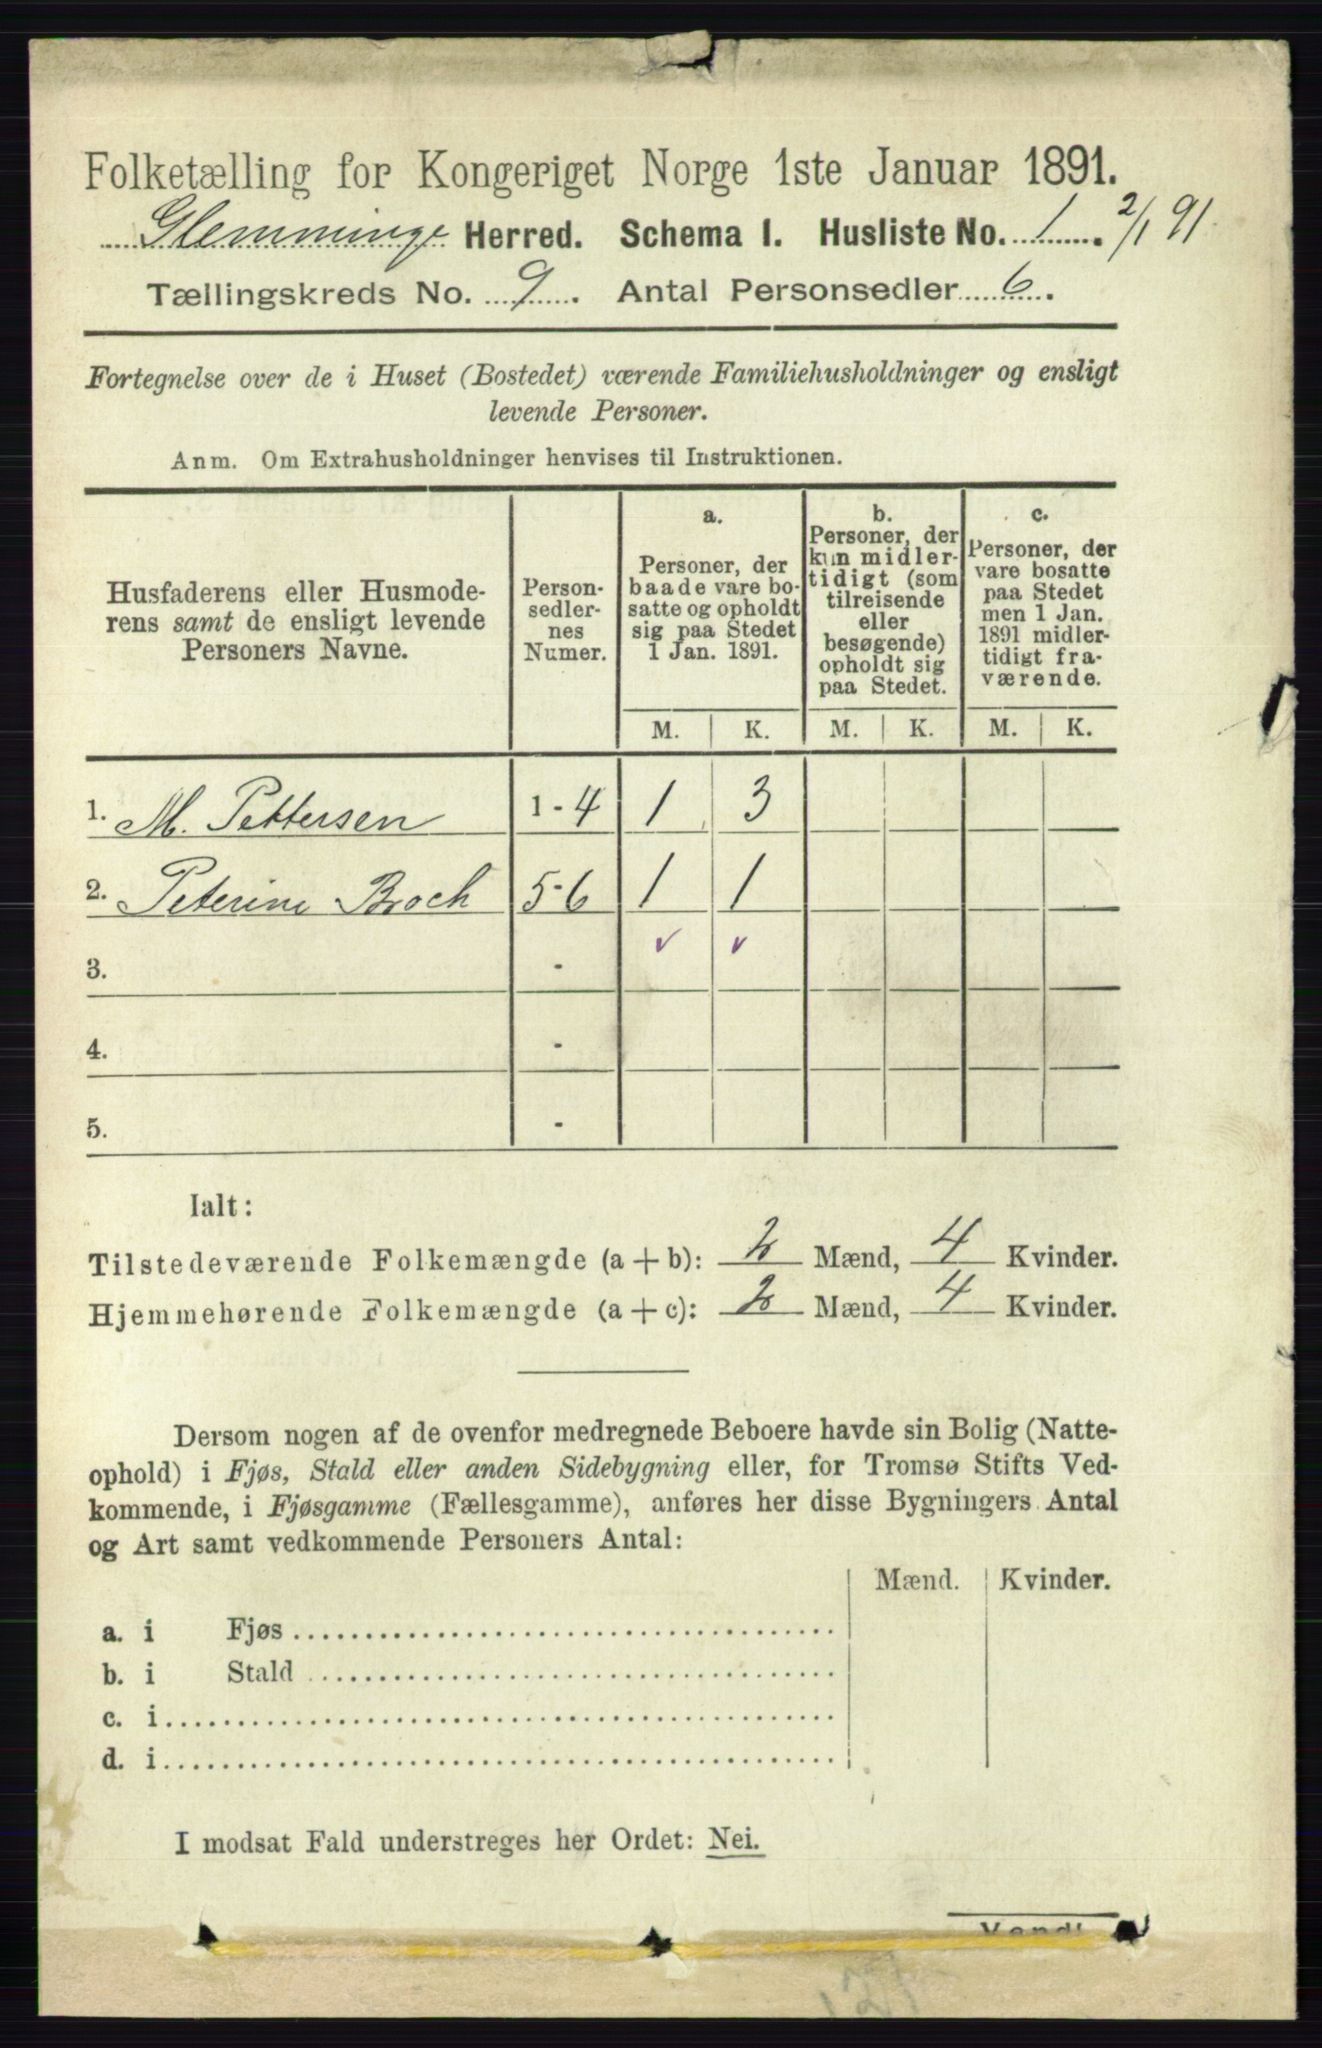 Folketælling for Kongeriget Norge 1ste Januar 1891.
Glemminge Herred. Schema I. Husliste No. 1. 2/1 91
Tællingskreds No. 9. Antal Personsedler 6.
Fortegnelse over de i Huset (Bostedet) værende Familiehusholdninger og ensligt
levende Personer.
Anm. Om Extrahusholdninger henvises til Instruktionen.
Husfaderens eller Husmode-
rens samt de ensligt levende
Personers Navne.
Person-
sedler-
nes
Numer.
a.
Personer, der
baade vare bo-
satte og opholdt
sig paa Stedet
1 Jan. 1891.
b.
Personer, der
kun midler-
tidigt (som
tilreisende
eller
besøgende)
opholdt sig
paa Stedet.
c.
Personer, der
vare bosatte
paa Stedet
men 1 Jan.
1891 midler-
tidigt fra-
værende.
M. K. M. K. M. K.
1. M. Pettersen 1 - 4 1 3
2. Peterine Broch 5 - 6 1 1
3. -
4. -
5. -
Ialt:
Tilstedeværende Folkemængde (a + b): 2 Mænd, 4 Kvinder.
Hjemmehørende Folkemængde (a + c): 2 Mænd, 4 Kvinder.
Dersom nogen af de ovenfor medregnede Beboere havde sin Bolig (Natte-
ophold) i Fjøs, Stald eller anden Sidebygning eller, for Tromsø Stifts Ved-
kommende, i Fjøsgamme (Fællesgamme), anføres her disse Bygningers Antal
og Art samt vedkommende Personers Antal:
Mænd. Kvinder.
a. i Fjøs
b. i Stald
c. i
d. i
I modsat Fald understreges her Ordet: Nei.
Vend!